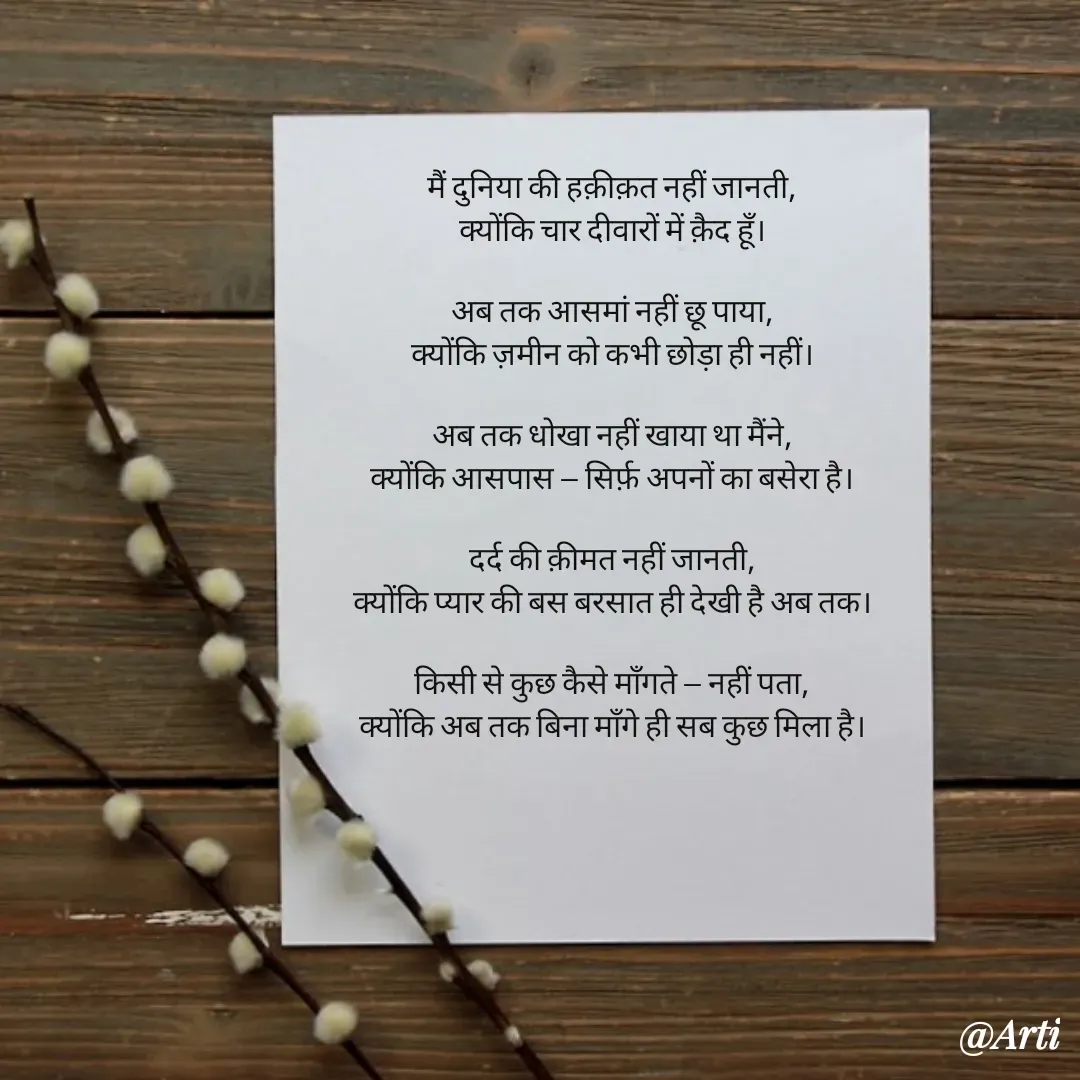 मैं दुनिया की हक़ीक़त नहीं जानती,
क्योंकि चार दीवारों में क़ैद हूँ।
अब तक आसमां नहीं छू पाया,
क्योंकि ज़मीन को कभी छोड़ा ही नहीं।
अब तक धोखा नहीं खाया था मैंने,
क्योंकि आसपास – सिर्फ़ अपनों का बसेरा है।
दर्द की क़ीमत नहीं जानती,
क्योंकि प्यार की बस बरसात ही देखी है अब तक।
किसी से कुछ कैसे माँगते – नहीं पता,
क्योंकि अब तक बिना माँगे ही सब कुछ मिला है।
@Arti